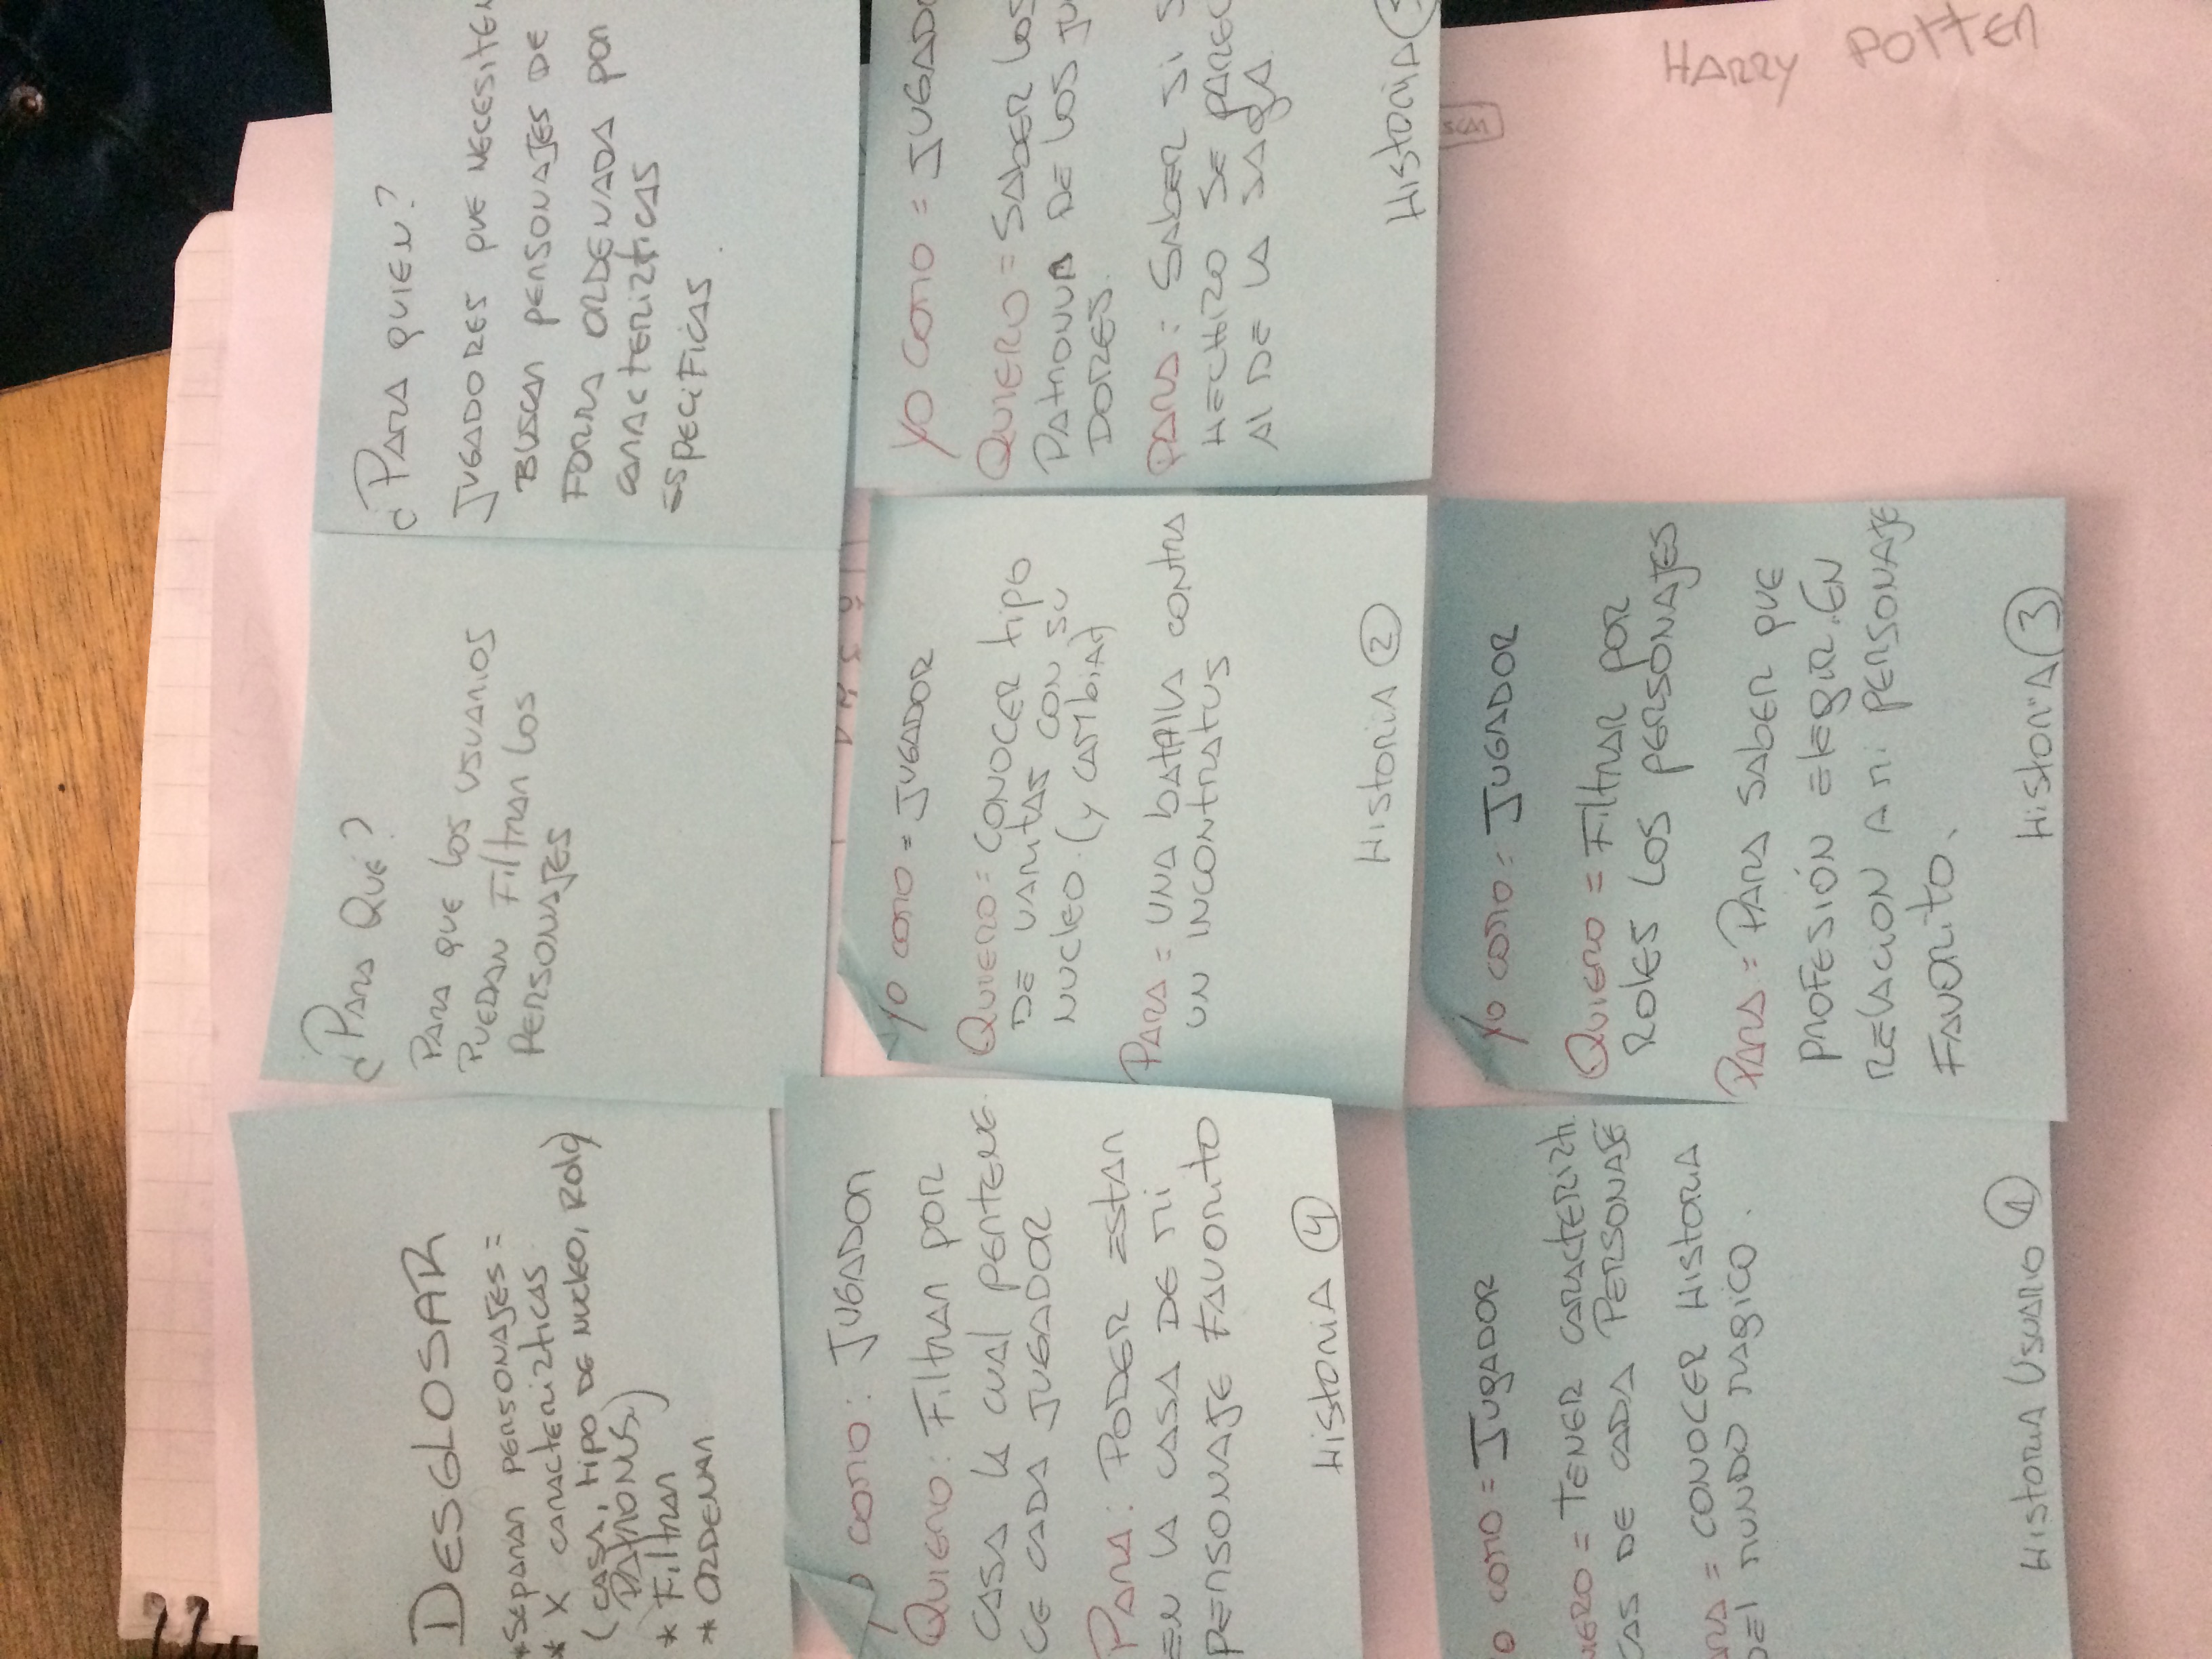 DESGLOSAR
*SEPARAR PERSONAJES =
* X CARACTERIZTICAS
(CASA, tipo DE NUCLEO, Rol,
PATRONUS)
* Filtrar
* ORDENAR
¿PARA QUÉ?
PARA QUE los USUARIOS
PUEDAN Filtrar LOS
PERSONAJES
¿PARA QUIEN?
JUGADORES QUE NECESITEN
BUSCAR PERSONAJES DE
FORMA ORDENADA POR
CARACTERIZTICAS
ESPECIFICAS.
COMO: JUGADOR
QUIERO: Filtrar POR
CASA LA CUAL PERTENE-
CE CADA JUGADOR
PARA: PODER ESTAR
EN LA CASA DE MI
PERSONAJE FAVORITO
HistoriA 4
YO COMO = JUGADOR
QUIERO = CONOCER tipo
DE VARITAS CON SU
NUCLEO. (y CAMbiAr)
PARA = UNA bATAllA CONTRA
UN INCONTRATUS
HistoriA 2
YO COMO = JUGADO
QUIERO = SABER los
DE LOS JU
DORES.
PARA = SABER Si S
HECHIZO SE PAREC
Al DE LA SAGA.
HistoriA
O COMO = JUGADOR
IERO = TENER CARACTERIZTI
CAS DE CADA PERSONAJE
ARA = CONOCER HISTORIA
DEl MUNDO MAGICO.
HISTORIA USUARIO 1
YO COMO = JUGADOR
QUIERO = Filtrar POR
ROLES LOS PERSONAJES
PARA = PARA SABER QUE
PROFESIÓN ELEGIR. EN
RELACION A Mi PERSONAJE
FAVORITO.
HistoriA 3
HARRY POTTER